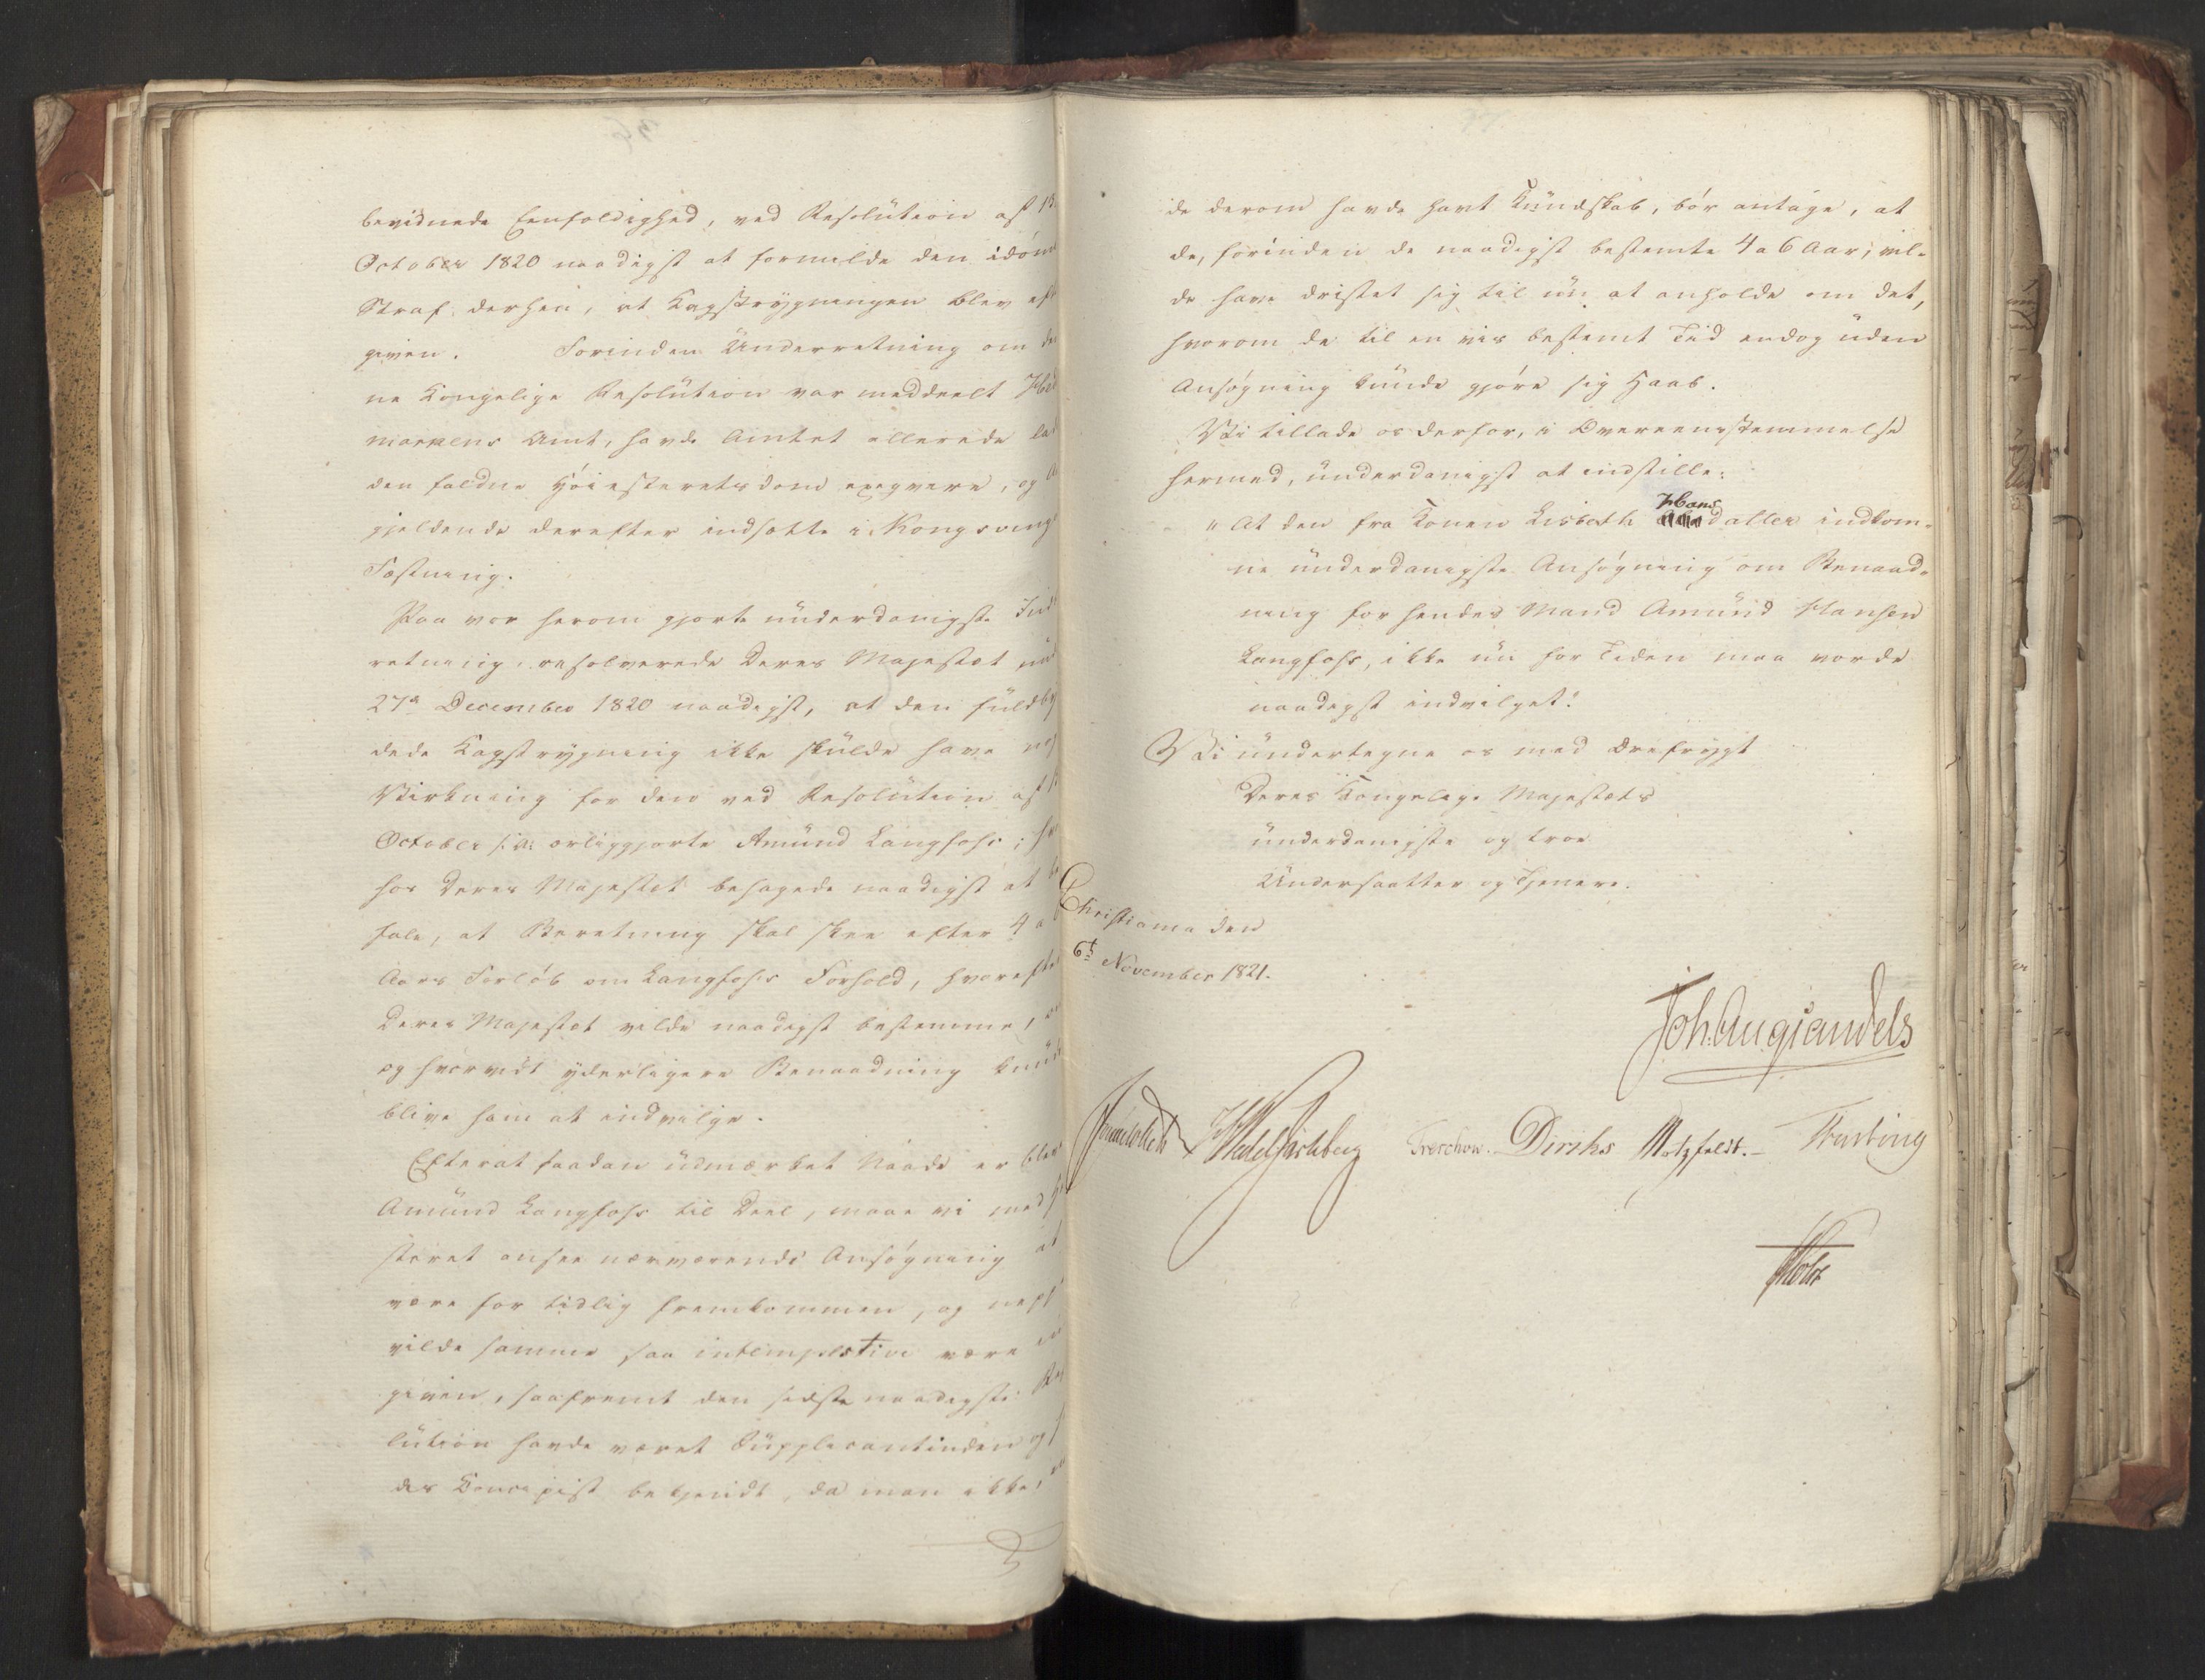 bevidnede Eenfoldighed, ved Resolution af 13
October 1820 naadigst at formilde den idöm
Straf derhen, at Kagstrygningen blev ef
given. Forinden Underretning om de
ne Kongelige Resolution var meddeelt Hed
markens Amt, havde Amtet allerede lad
den faldne Höiesteretsdom exeqvere, og
gjeldende derefter indsatte i Kongsving
Fæstning.
Paa vor herom gjorte underdanigste Ind
retning, resolverede Deres Majestæt und
27d December 1820 naadigst, at den fuldby
dede Kagstrygning ikke skulde have no
Virkning for den ved Resolution af 1
October s: A: ærliggjorte Amund Langfoss;
hos Deres Majestæt behagede naadigst at be
fale, at Beretning skal skee efter 4 a
Aars Forlöb om Langfoss's Forhold, hvoreft
Deres Majestæt vilde naadigst bestemme,
og hvorvidt yderligere Benaadning kun
blive ham at indvilge.
Efterat saadan udmærket Naade er blev
Amund Langfoss til Deel, maae vi med
steret ansee nærværende Ansögning at
være for tidlig fremkommen, og nep
vilde samme saa intempestive være in
given, saafremt den sidste naadigste Re
lution havde været Supplicantinden og
des Concipist bekjendt, da man ikke,
de derom havde havt Kundskab, bör antage, at
de, forinden de naadigst bestemte 4 a 6 Aar, vil-
de have dristet sig til nu at anholde om det,
hvorom de til en vis bestemt Tid endog uden
Ansögning kunde gjöre sig Haab.
Vi tillade os derfor, i Overeensstemmelse
hermed, underdanigst at indstille:
"At den fra Konen Lisbeth Hansdatter indkom-
ne underdanigste Ansögning om Benaad-
ning for hendes Mand Amund Hansen
Langfoss, ikke nu for Tiden maa vorde
naadigst indvilget!
Vi undertegne os med Ærefrygt
Deres Kongelige Majestæts
underdanigste og troe
Undersaatter og Tjenere.
Christiania den
6t November 1821.
Joh: Aug: Sandels
Sommerhielm Wedel Jarlsberg Treschow. Diriks Motzfeldt. Fasting
Holst